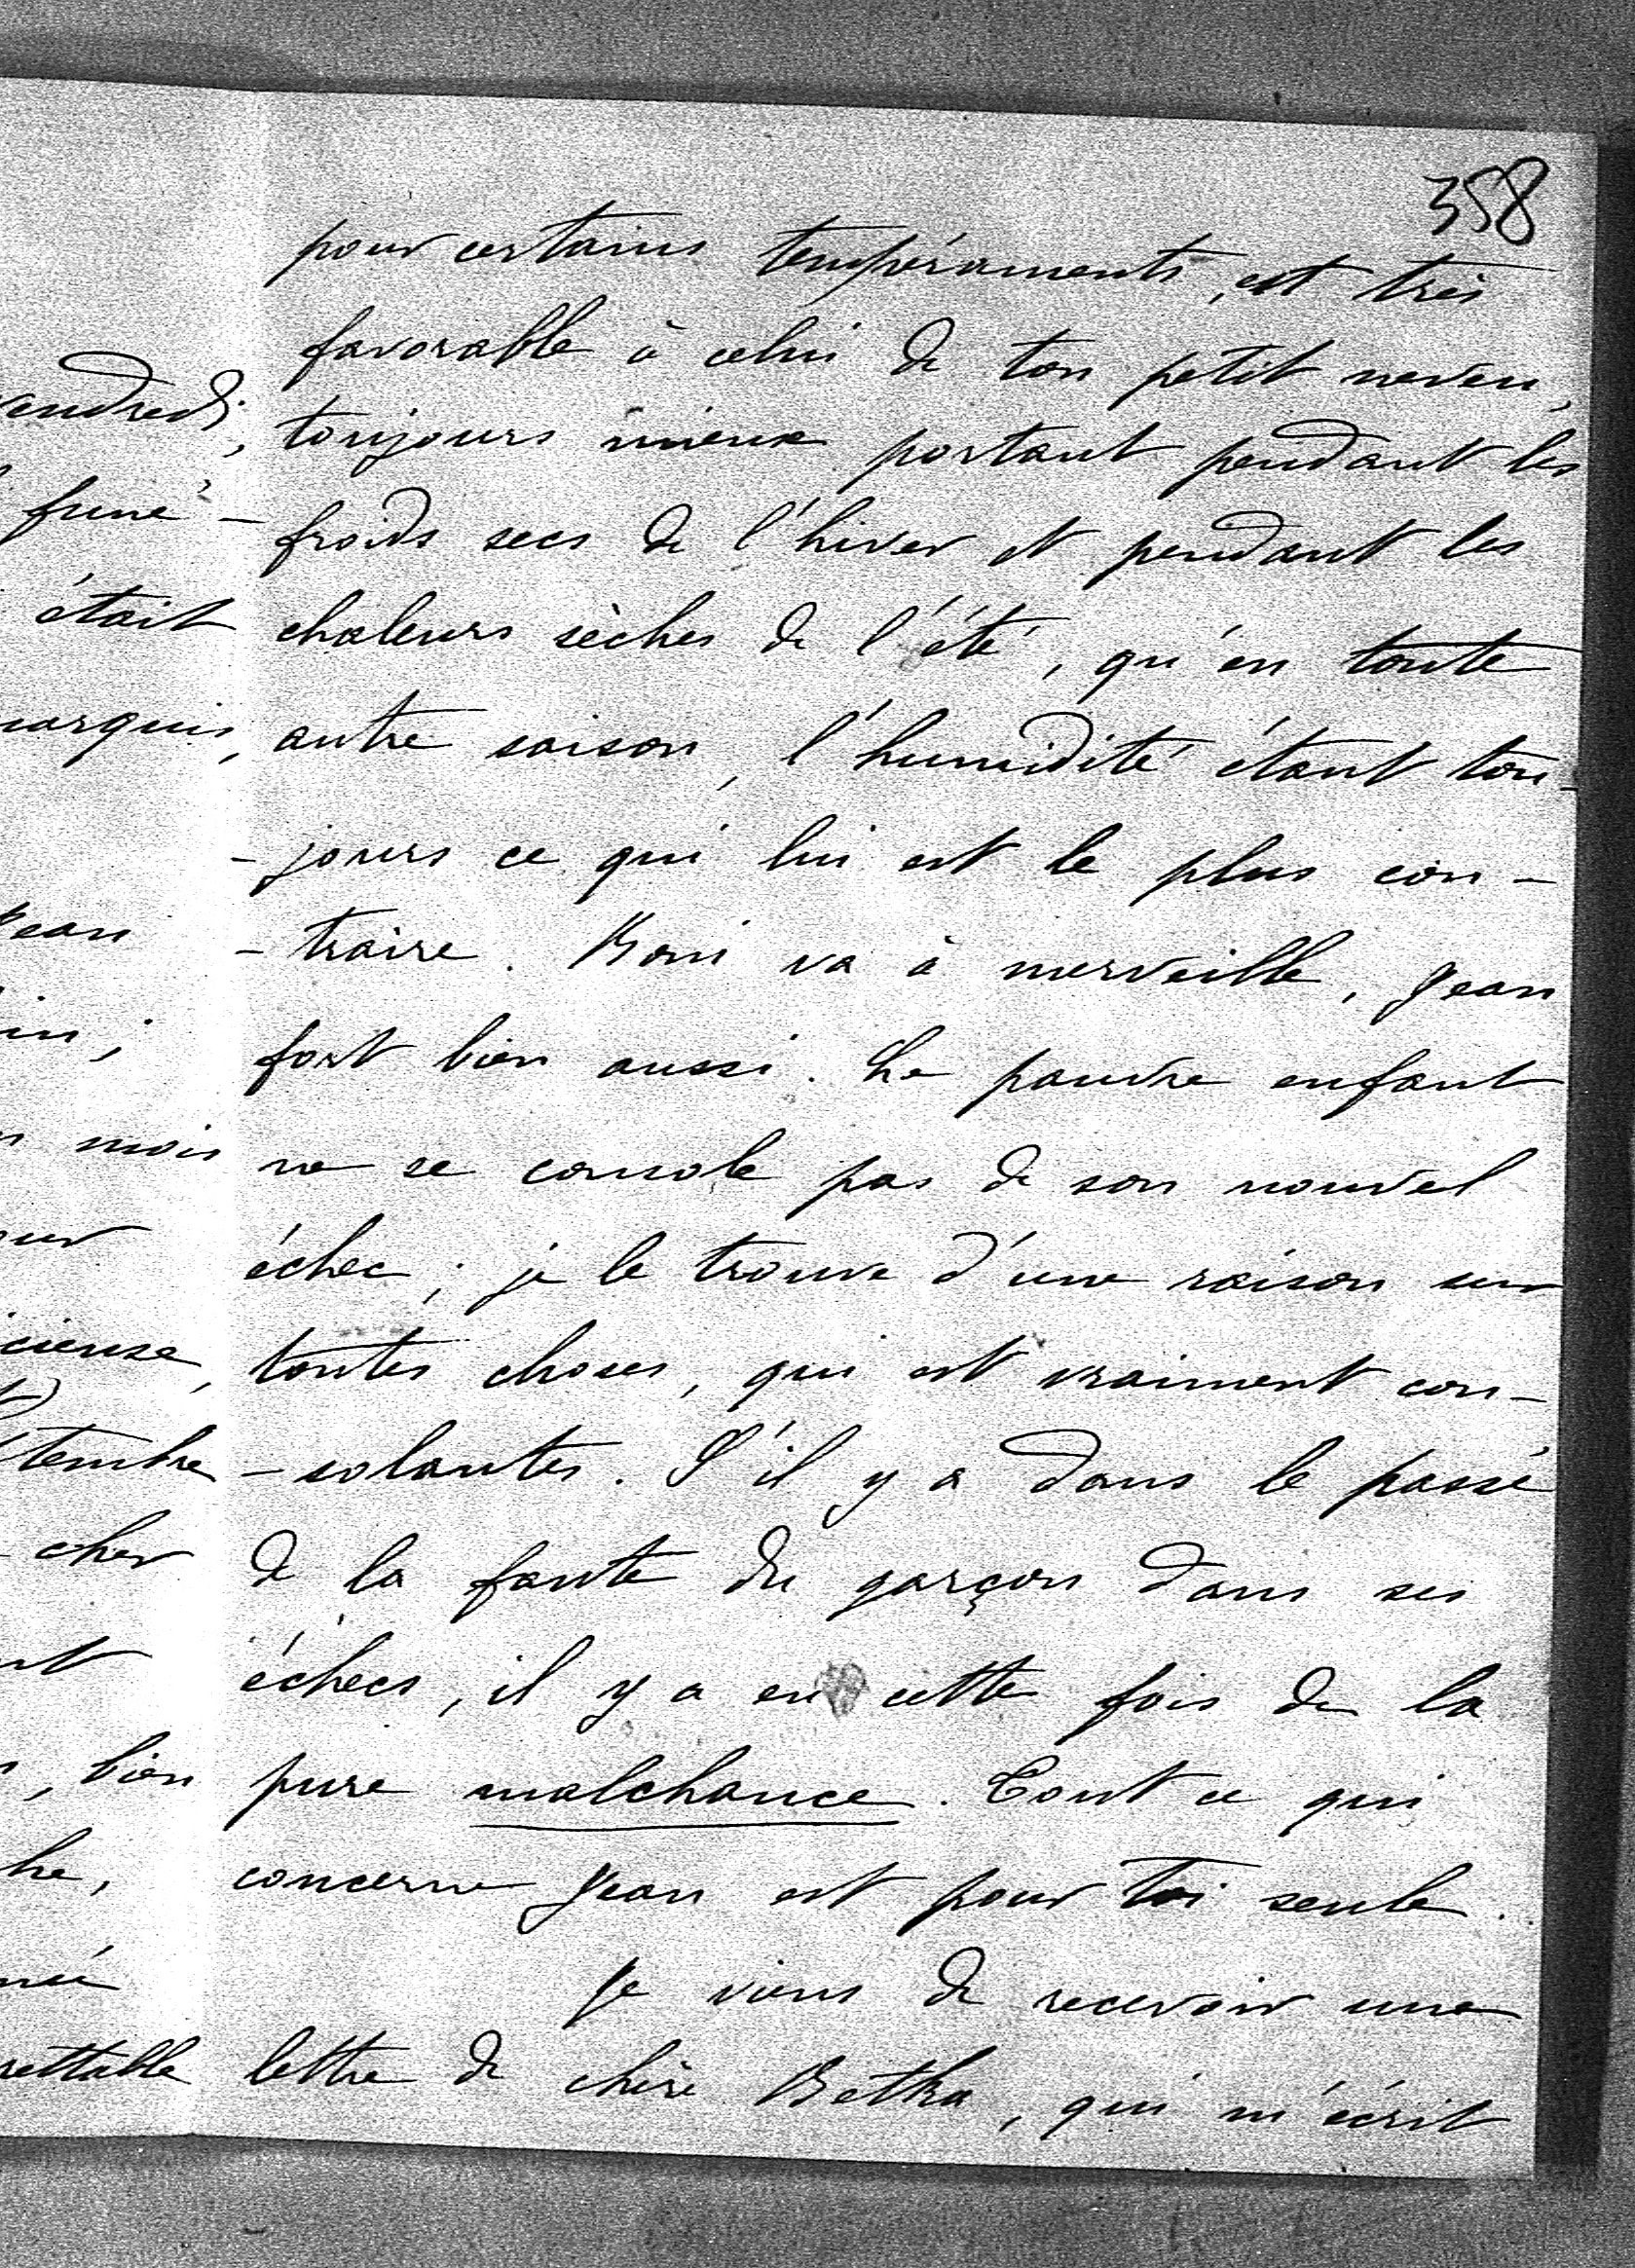 358
pour certains tempéraments, est très
favorable à celui de ton petit neveu,
toujours mieux portant pendant les
froids secs de l'hiver et pendant les
chaleurs sèches de l'été, qu'en toute
autre saison, l'humidité étant tou-
-jours ce qui lui est le plus con-
-traire. Boni va à merveille, Jean
fort bien aussi. Le pauvre enfant
ne se console pas de son nouvel
échec ; je le trouve d'une raison sur
toutes choses, qui est vraiment con-
-solantes. S'il y a dans le passé
de la faute du garçon dans ses
échecs, il y a eu cette fois de la
pure malchance. Tout ce qui
concerne Jean est pour toi seule.
Je viens de recevoir une
lettre de chère Betka, qui m'écrit
endredi,
funé-
était
arquis,
ean
in ;
mois
cieuse,
tembre
cher
, bien
he,
rettable